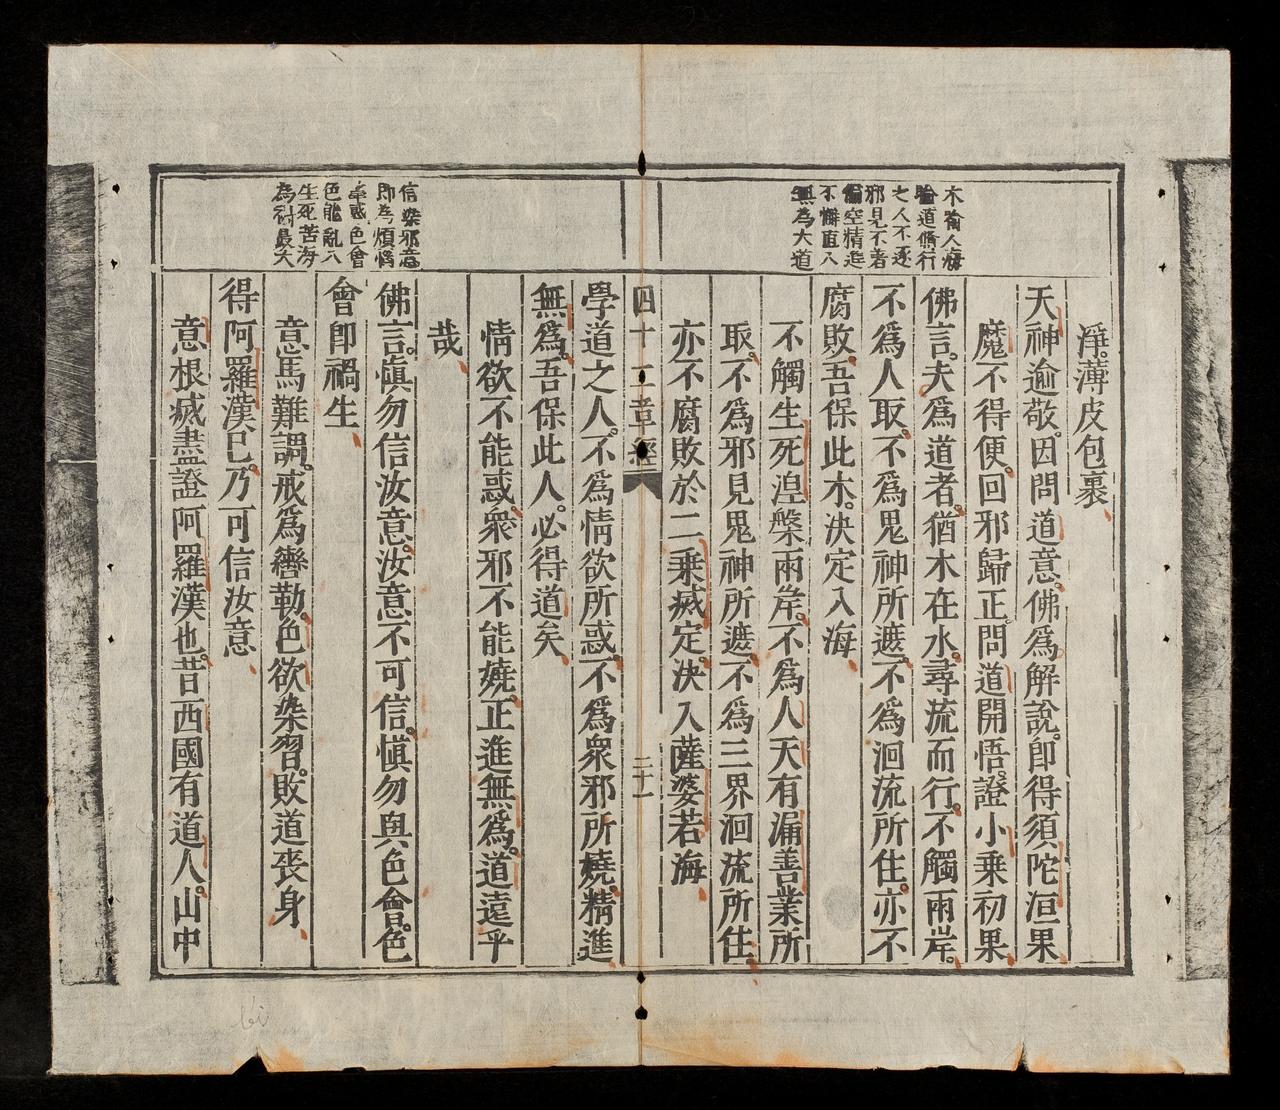 木喻人海
喻道脩行
之人不逐
邪見不著
偏空精進
不懈直入
無為大道
淨薄皮包裹
天神逾敬因問道意佛爲解說即得須陀洹果
魔不得便回邪歸正問道開悟證小乘初果
佛言夫爲道者猶木在水尋流而行不觸兩岸
不爲人取不爲鬼神所遮不爲洄流所住亦不
腐敗吾保此木決定入海
不觸生死湼槃兩岸不爲人天有漏善業所
取不爲邪見鬼神所遮不爲三界洄流所住
亦不腐敗於二乘滅定決入薩婆若海
四十二章經
二十一
信染邪意
即為煩惱
卓惑色會
色能亂人
生死苦海
為衬最大
學道之人不爲情欲所惑不爲衆邪所嬈精進
無爲吾保此人必得道矣
情欲不能惑衆邪不能嬈正進無爲道遠乎
哉
佛言愼勿信汝意汝意不可信愼勿與色會色
會即禍生
意馬難調戒爲轡勒色欲染習敗道喪身
得阿羅漢已乃可信汝意
意根滅盡證阿羅漢也昔西國有道人山中